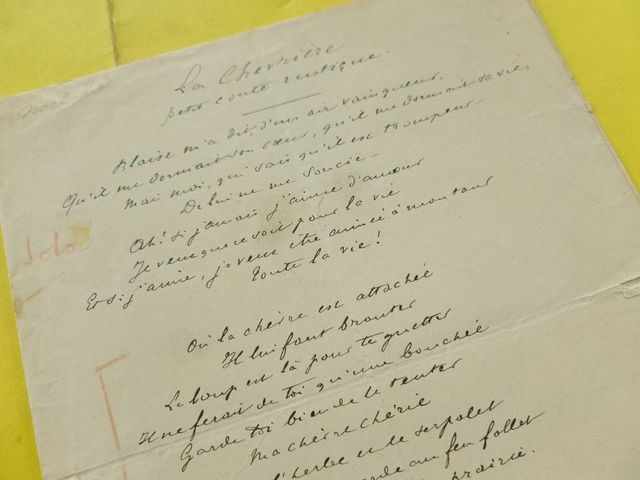 La Chevrière
petit conte rustique.
Blaise m'a dit, d'un air vainqueur,
Qu'il me donnait son cœur, qu'il me donnait sa vie,
Mais moi, qui sais qu'il est trompeur
De lui ne me soucie _
Ah! si jamais j'aime d'amour
Je veux que ce soit pour la vie
Et si j'aime, je veux être aimée à mon tour
Toute la vie!
Solo
Où la chèvre est attachée
Il lui faut brouter
Le loup est là pour te guetter
Il ne ferait de toi qu'une bouchée
Garde toi bien de le tenter
Ma chèvre chérie
l'herbe et le serpolet
au feu follet
prairie.